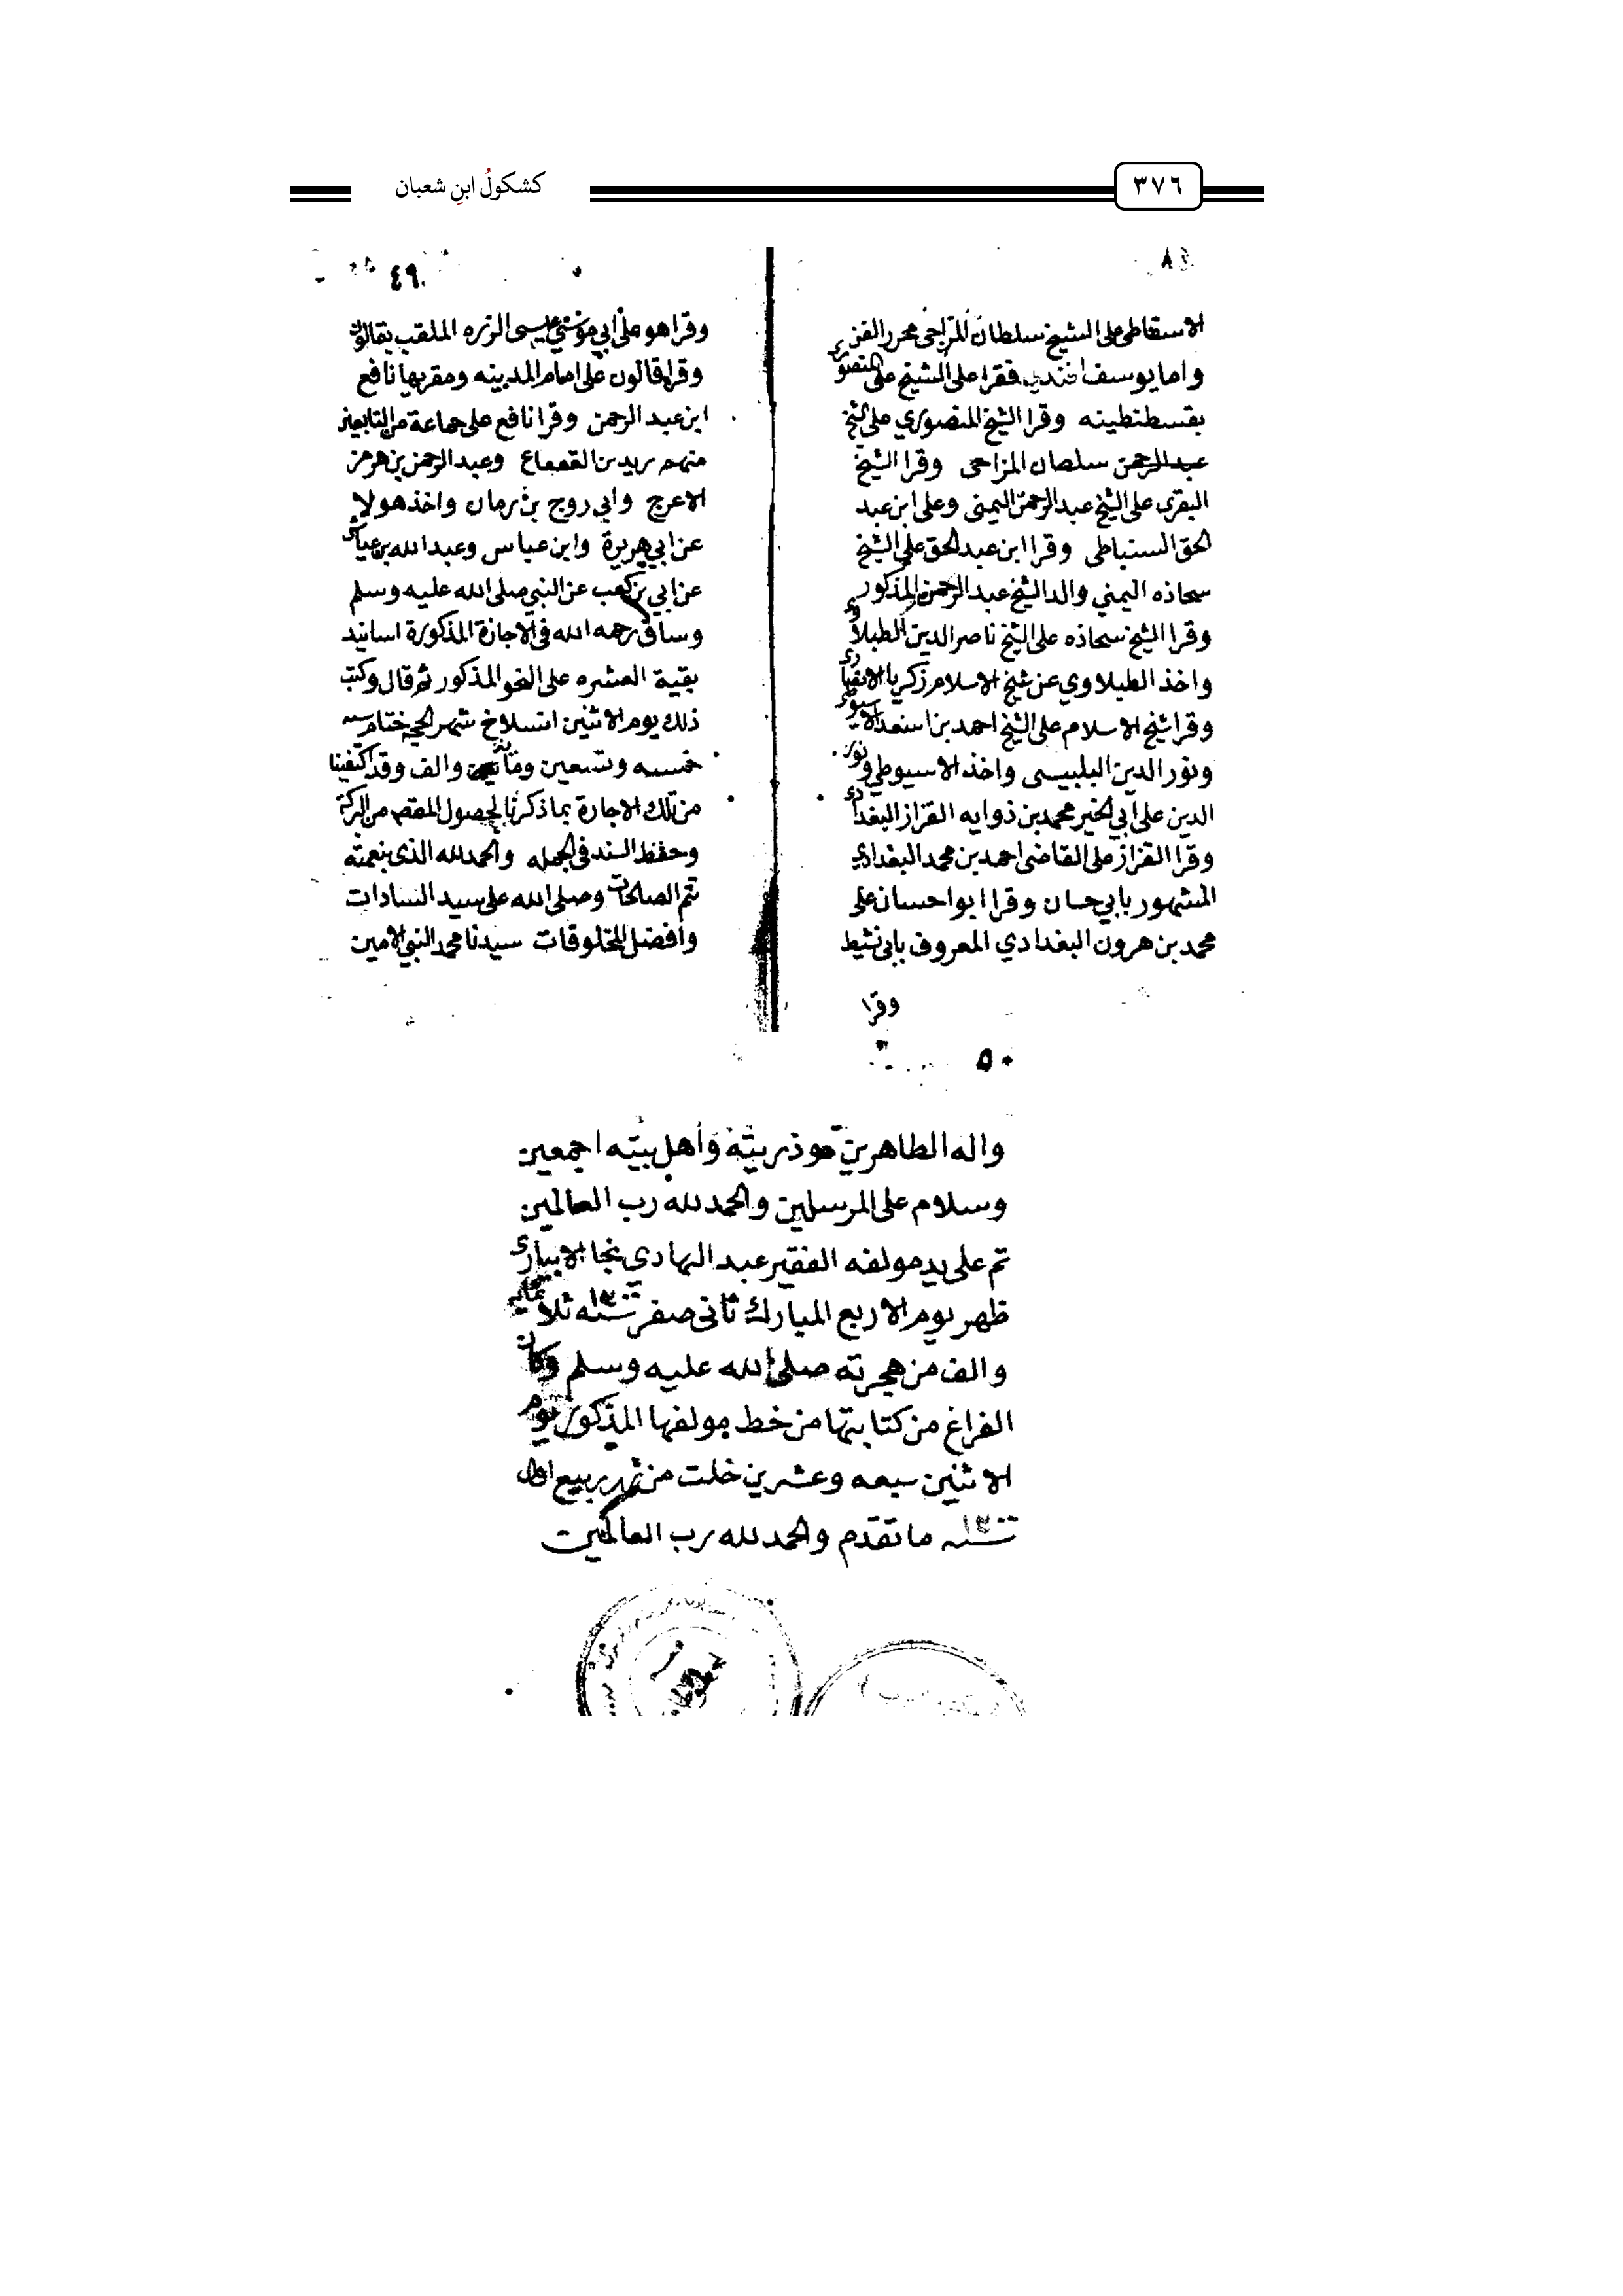 كشكولُ ابنِ شعبان
٣٧٦
الاسقاطى على الشيخ سلطان المزاجى محرر الفن
واما يوسف افندي فقرا على الشيخ على المنصورى
بقسطنطينه وقرا الشيخ المنصوري على الشيخ
عبد الرحمن سلطان المزاحى وقرا الشيخ
البقرى على الشيخ عبد الرحمن اليمنى وعلى ابن عبد
الحق السنباطى وقرا ابن عبد الحق على الشيخ
سحاذه اليمني والد الشيخ عبد الرحمن المذكور
وقرا الشيخ سحاذه على الشيخ ناصر الدين الطبلاوى
واخذ الطبلاوي عن شيخ الاسلام زكريا الانصارى
وقرا شيخ الاسلام على الشيخ احمد بن اسعد الاسيوطى
ونور الدين البلبيسى واخذ الاسيوطي ونور
الدين على ابي الخير محمد بن ذوايه القزاز البغدادى
وقرا القزاز على القاضى احمد بن محمد البغدادي
المشهور بابي حسان وقرا ابو احسان على
محمد بن هرون البغدادي المعروف بابى نشيط
وقرا
٤٩
وقرا هو على ابي موسى عيسى الزره الملقب بقالون
وقرا قالون على امام المدينه ومقريها نافع
ابن عبد الرحمن وقرا نافع على جماعة من التابعين
منهم يريد بن القعماع وعبد الرحمن بن هرمز
الاعرج وابي روح بن رمان واخذ هولا
عن ابي هريرة وابن عباس وعبد الله بن عياش
عن ابي بن كعب عن النبي صلى الله عليه وسلم
وساق رحمه الله فى الاجازة المذكورة اسانيد
بقية العشره على النحو المذكور ثم قال وكتب
ذلك يوم الاثنين انسلاخ شهر الحجه ختام سنه
خمسه وتسعين ومائتين والف وقد اكتفينا
من تلك الاجازة بما ذكرنا لحصول المقصد من البركة
وحفظ السند فى الجمله والحمد لله الذى بنعمته
تتم الصالحات وصلى الله على سيد السادات
وافضل المخلوقات سيدنا محمد النبي الامين
٥٠
واله الطاهرين وذريته واهل بيته اجمعين
وسلام على المرسلين والحمد لله رب العالمين
تم على يد مولفه الفقير عبد الهادى نجا الابيارى
ظهر يوم الاربع المبارك ثانى صفر سنه ١٣٠٠ ثلاثمايه
والف من هجرته صلى الله عليه وسلم وكان
الفراغ من كتابتها من خط مولفها المذكور يوم
الاثنين سبعه وعشرين خلت من شهر ربيع اول
سنه ١٣٠٠ ما تقدم والحمد لله رب العالمين